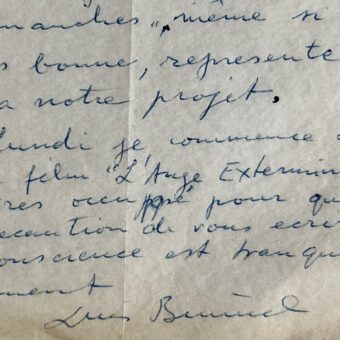 manches", même si
s bonne, represente
a notre projet.
lundi je commence
film "L'Ange Extermin
res occupé pour qu
ecaution de vous ecri
onscience est tranqu
ment
Luis Buñuel